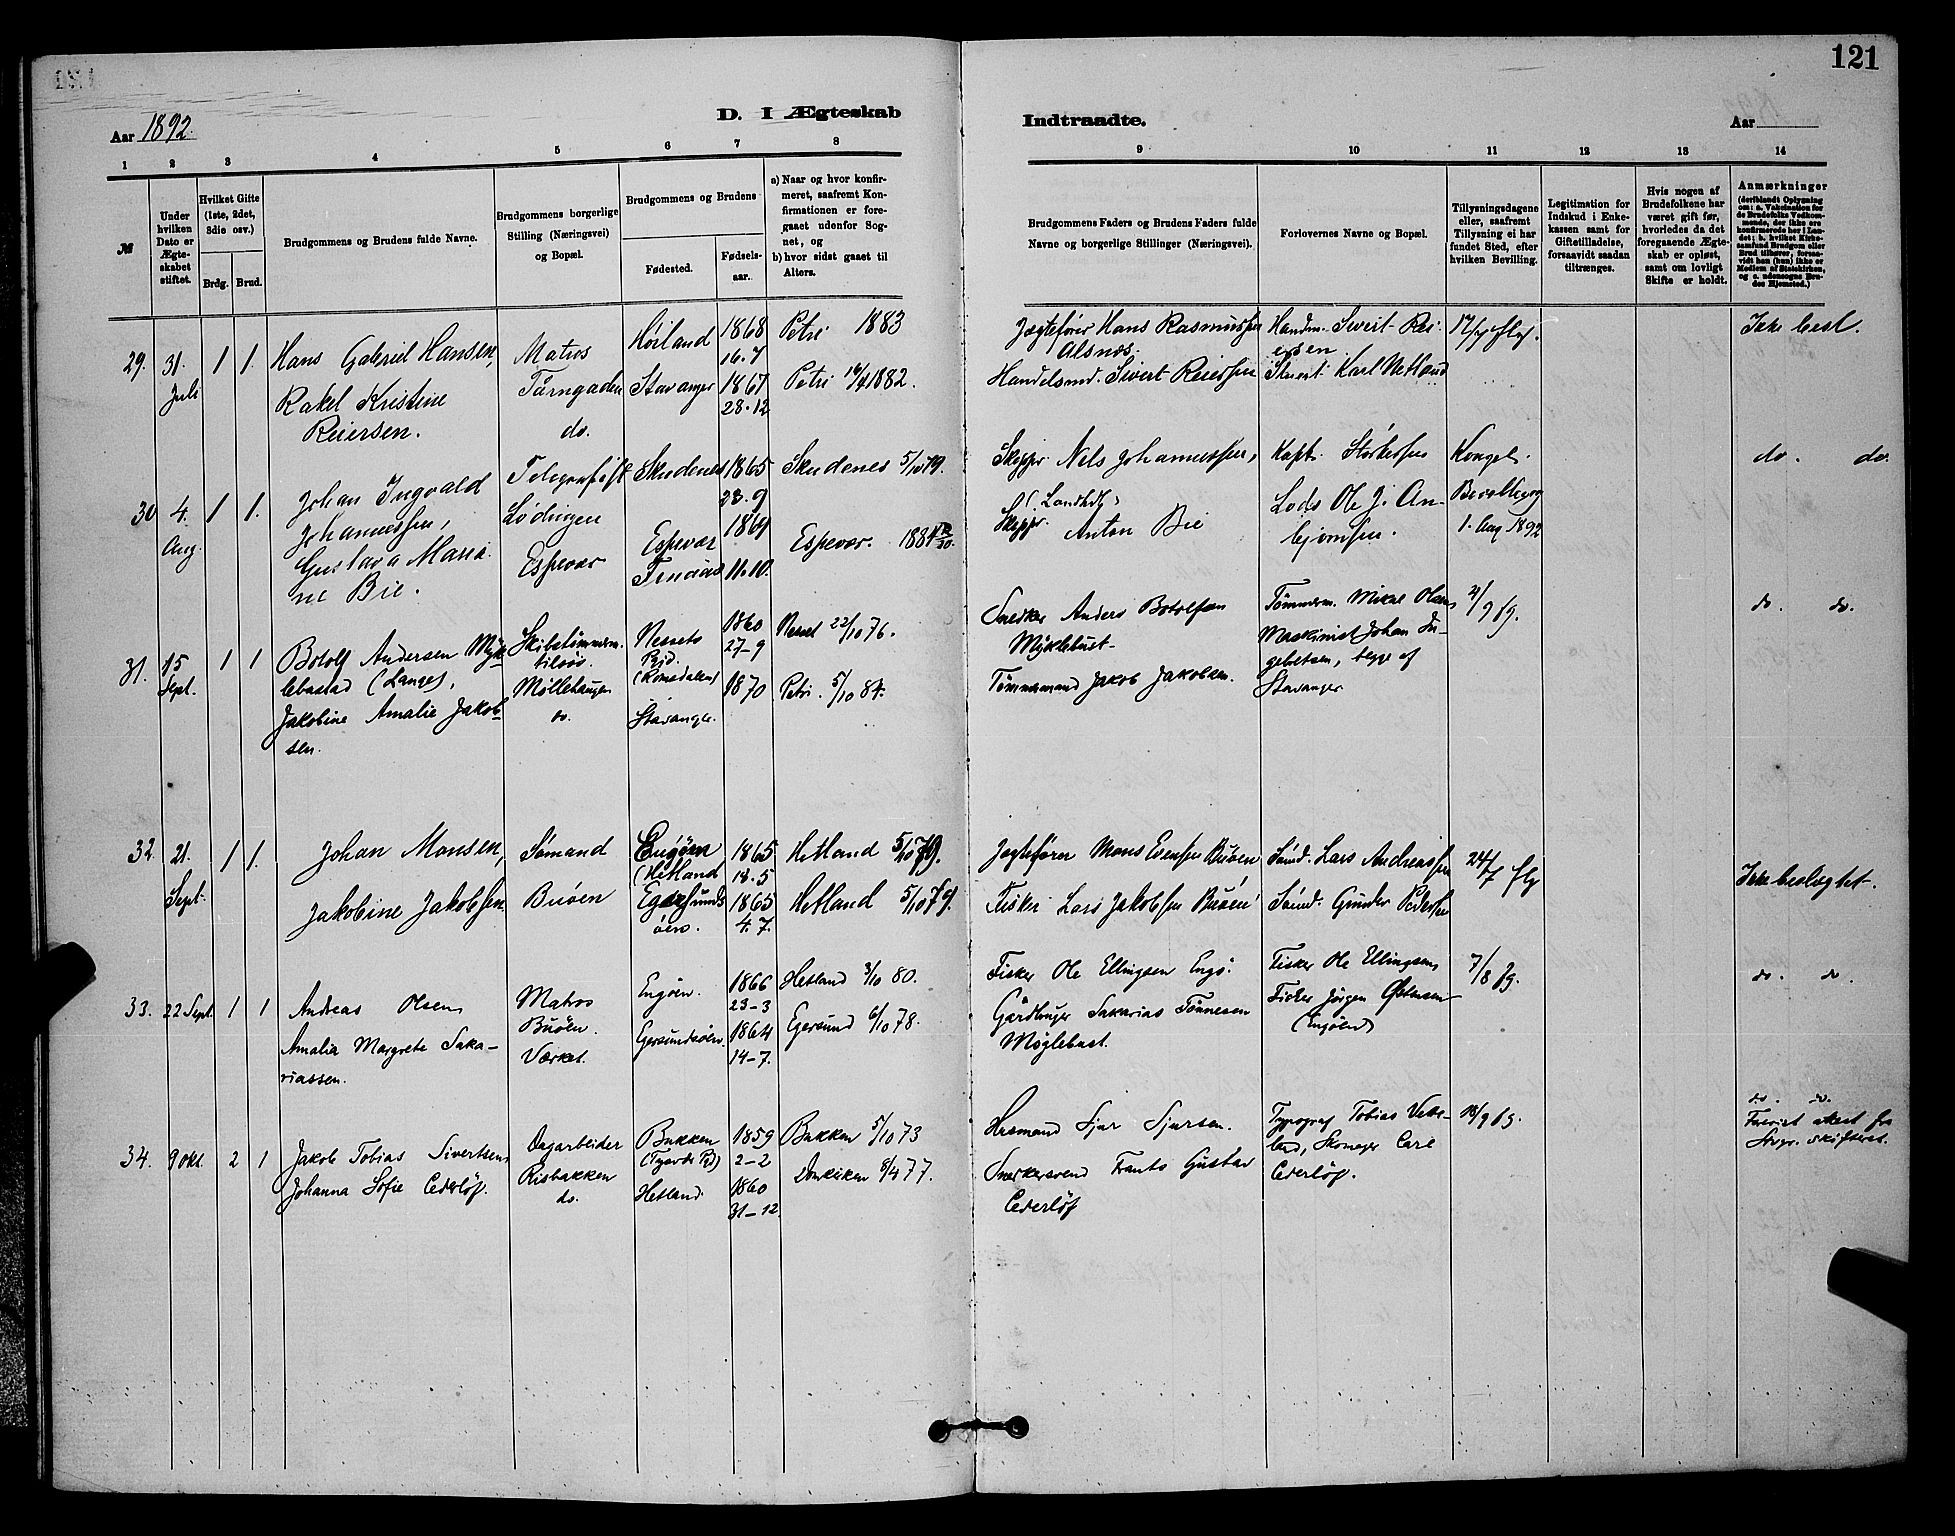 121
Aar 1892.
D. I Ægteskab
Indtraadte.
Aar
1 2 3 4 5 6 7 8
9 10 11 12 13 14
№
Under hvilken Dato er Ægteskabet stiftet.
Hvilket Gifte (1ste, 2det, 3die osv.)
Brdg. Brud.
Brudgommens og Brudens fulde Navne.
Brudgommens borgerlige Stilling (Næringsvei) og Bopæl.
Brudgommens og Brudens
Fødested.
Fødselsaar.
a) Naar og hvor konfirmeret, saafremt Konfirmationen er foregaaet udenfor Sognet, og
b) hvor sidst gaaet til Alters.
Brudgommens Faders og Brudens Faders fulde Navne og borgerlige Stillinger (Næringsvei).
Forlovernes Navne og Bopæl.
Tillysningsdagene eller, saafremt Tillysning ei har fundet Sted, efter hvilken Bevilling.
Legitimation for Indskud i Enkekassen samt for Giftetilladelse, forsaavidt saadan tiltrænges.
Hvis nogen af Brudefolkene har været gift før, hvorledes da det foregaaende Ægteskab er opløst, samt om lovligt Skifte er holdt.
Anmærkninger
29. 31. Juli 1 1.
Hans Gabriel Hansen,
Rakel Kristine
Reiersen.
Matros
do.
Høiland 1868
16.7
Stavanger 1867
28.12
Petri 1883
Petri 1882.
Jægtefører Hans Rasmussen
Alsnæs.
Handelsmd. Sivert Reiersen
Handm. Sivert Reiersen
Karl Netland
17/7 flg.
Ikke besl.
30 4. Aug. 1 1.
Johan Ingvald
Johannessen,
Gustava Maria
ne Bie.
Lødingen
Espevær
Skudenes 1865
23.9
Espevær 1869
11.10.
Skudenes 5/10 79.
Espevær.
Skipper Nels Johannessen,
Skipper Anton Bie
Kapt. Størkersen
Lods Ole J. An-
bjørnsen.
Kongel.
Bevilling
1. Aug. 1892
do. do.
31. 15 Sept. 1 1
Botolf Andersen Myk-
lebostad (Langes),
Jakobine Amalie Jakob-
sen.
Skibstømmerm.
Møllehaugen
do.
(Romsdalen)
Stavanger.
1860
27-9
1870
22/10 76.
Petri. 5/10 84.
Snedker Anders Botolfsen
Myklebust
Tømmermand Jakob Jakobsen.
Tømmerm. Mikal Olsen,
Maskinist Johan In-
gebretsen, begge af
Stavanger
4/9 flg.
do. do.
32. 21. Sept. 1 1.
Johan Monsen,
Jakobine Jakobsen.
Sømand
Buøen
Engøen
(Hetland
Egersunds
øen.
1865
18.5
1865
4.7.
Hetland 5/10 79.
Hetland 5/10 79.
Jægtefører Mons Evensen Buøen
Fisker Lars Jakobsen Buøen
Sømd. Lars Andreassen
Sømd. Gunder Pedersen
24/7 flg
Ikke beslægtet.
33. 22 Sept. 1 1
Andreas Olsen
Amalia Margrete Saka-
riassen.
Matros
Buøen.
Værket.
Engøen.
Egersundsøen.
1866
23-3
1864
14-7.
Hetland 3/10 80.
Egersund 6/10 78.
Fisker Ole Ellingsen Engø.
Gårdbruger Sakarias Tønnesen
Møglebust.
Fisker Ole Ellingsen,
Fisker Jørgen Østensen
(Engøen)
7/8 flg.
do do
34. 9 okt. 2 1
Jakob Tobias Sivertsen,
Johanna Sofie Cederløf.
Dagarbeider
Risbakken
do.
Bakken
Hetland.
1859
2-2
1860
31-12
Bakken 5/10 73
Domkirken 8/4 77.
Husmand Sjur Sjursen.
Snedkersvend Frants Gustav
Cederløf
Typograf Tobias Vets-
land, Skomager Carl
Cederløf.
18/9 flg.
do. do.
Forevist attest fra